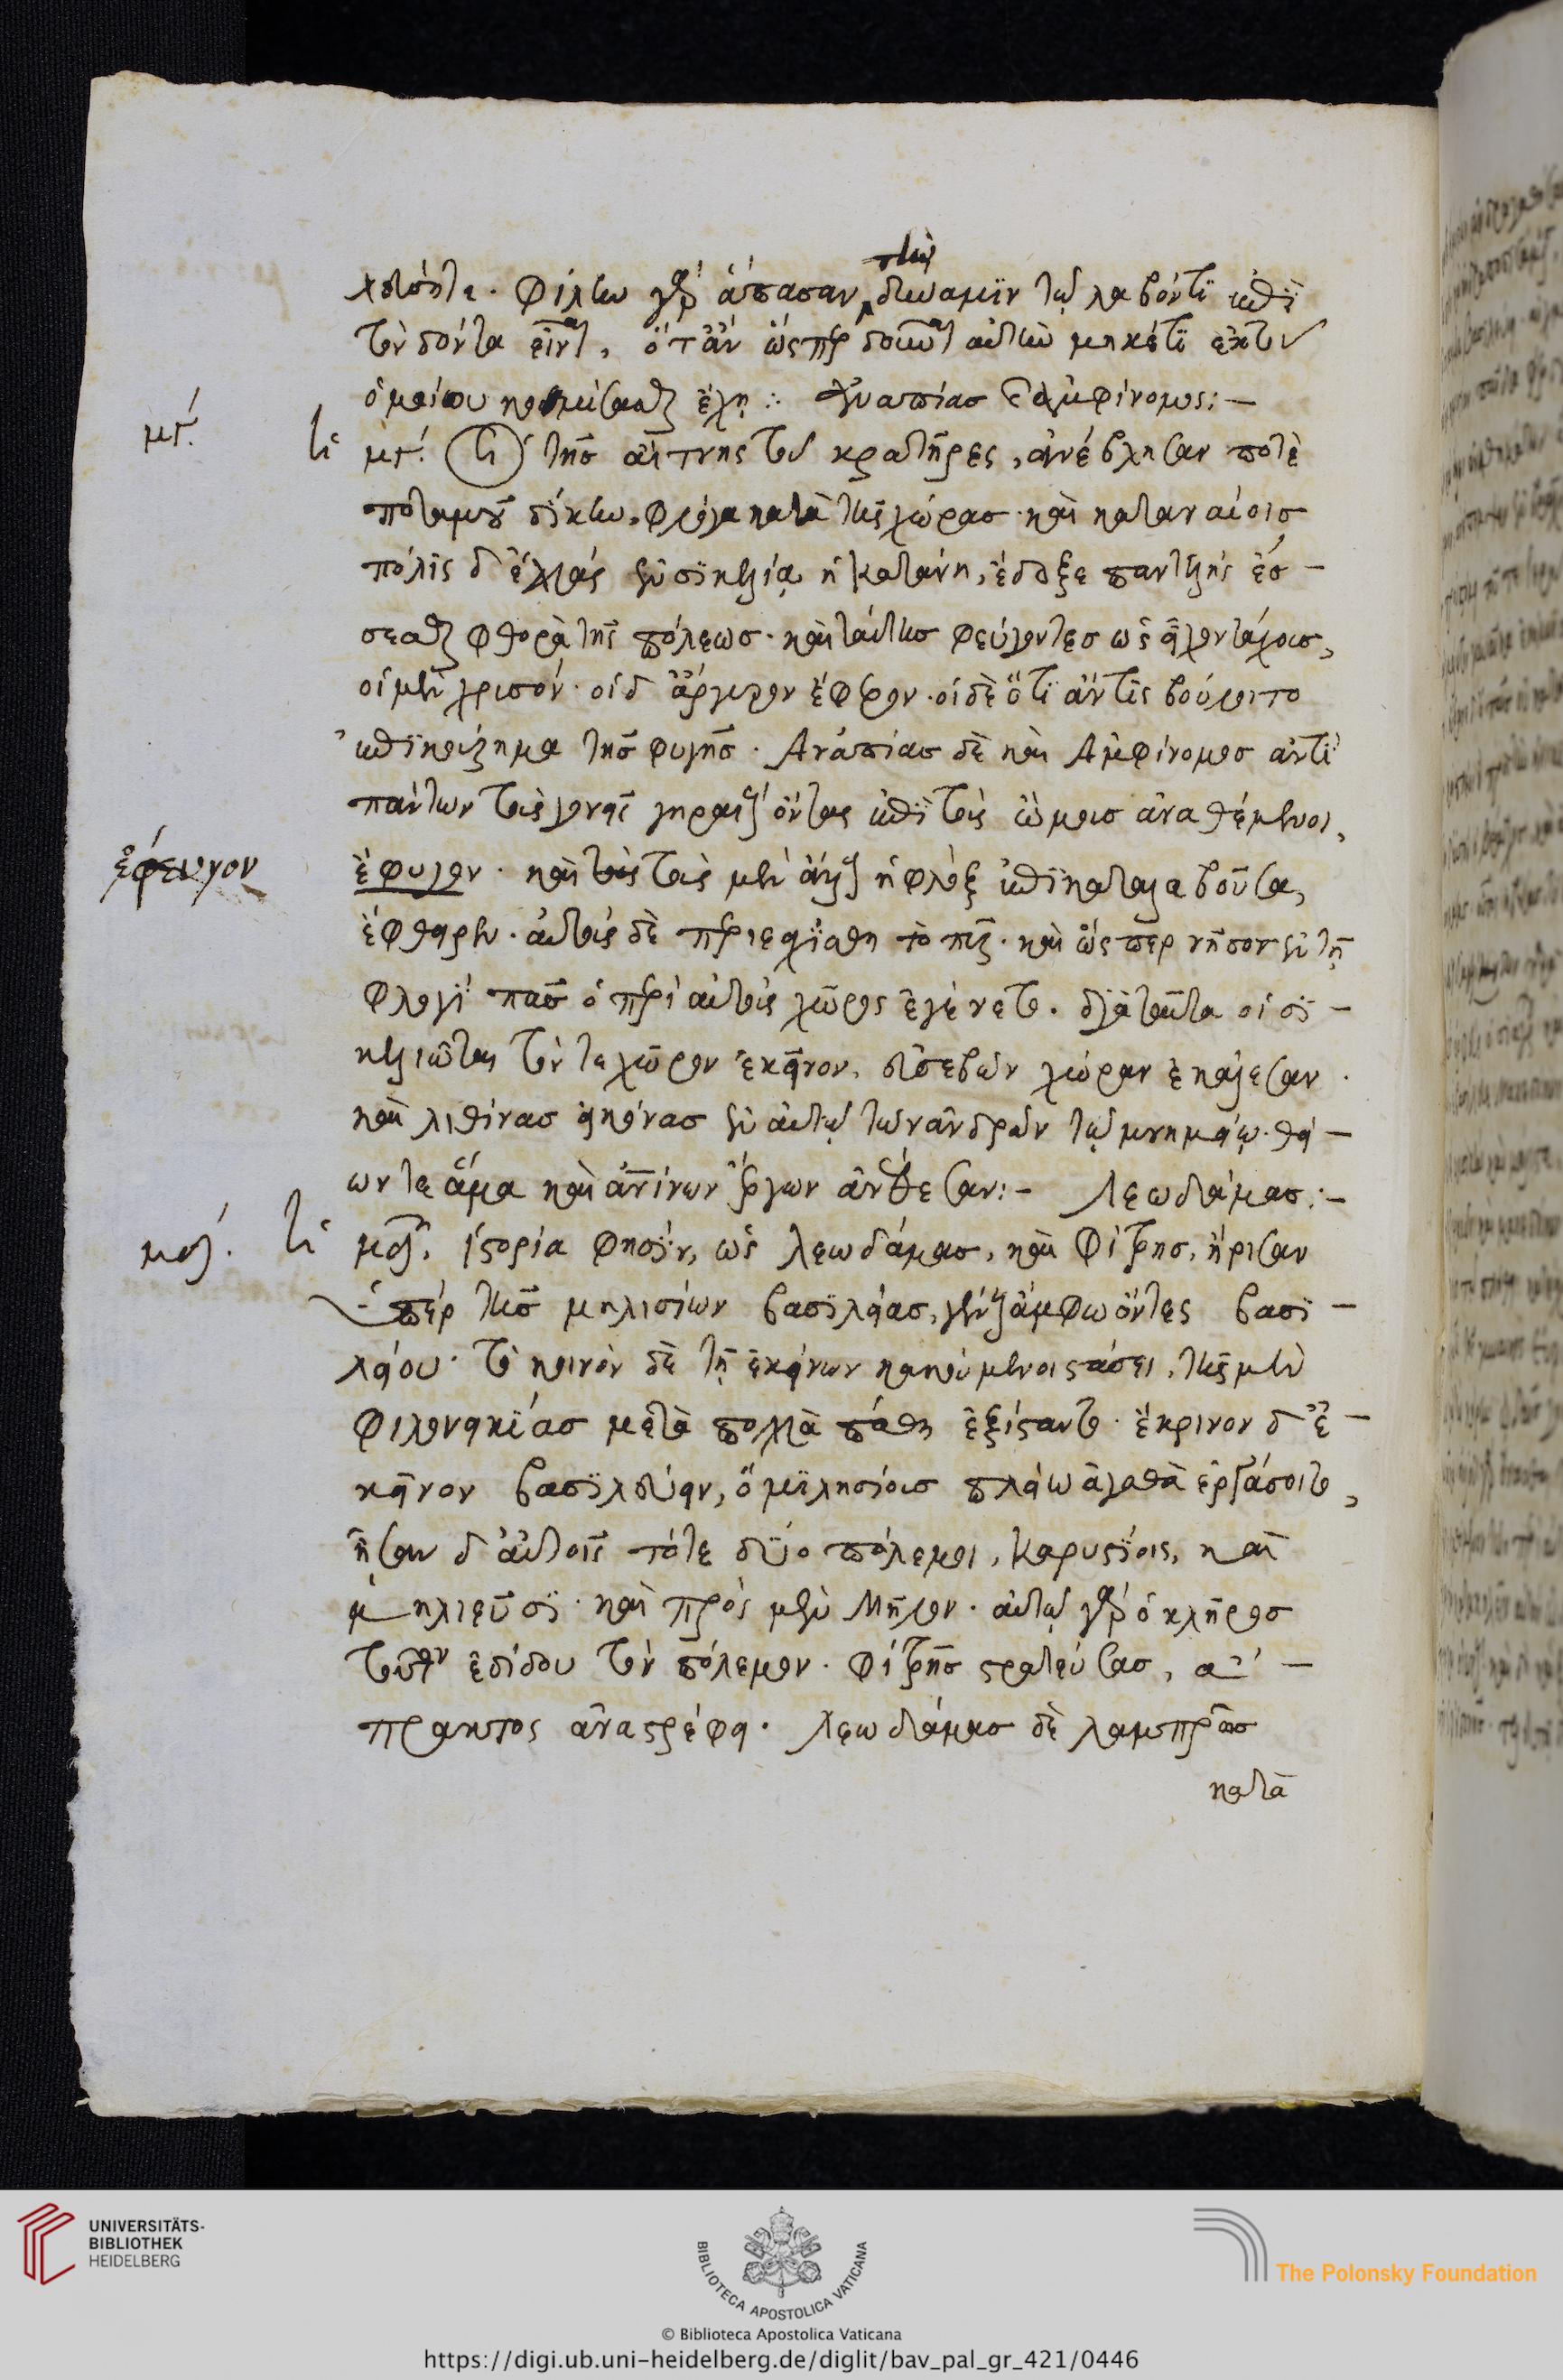 χθέντα. φίλων γὰρ ἅπασαν τὴν δύναμιν τῷ λαβόντι ἐπὶ
τὸν δόντα εἶναι, ὅτ' ἂν ὥσπερ δοκεῖ αὐτῶ μηκέτι
ὁμοίου κομίσασθαι ἔχῃ :· Ἀναπίας Ἀμφίνομος:–
μγ΄.
μγ΄. Οἱ τῆς αἴτνης τοῦ κρατῆρες, ἀνέβλησαν ποτὲ
ποταμοῦ δίκην φλόγα κατὰ τῆς χώρας· καὶ καταναίοις
πόλις δ' ἑλλὰς ἐν σικελίᾳ ἡ κατάνη, ἔδοξε παντελὴς ἔσ–
σεσθαι φθορὰ τῆς πόλεως. καὶ ταύτης φεύγοντες ὡς εἶχον τάχους,
οἱ μὲν χρυσόν· οἱ δ' ἄργυρον ἔφερον· οἱ δὲ ὅτι ἄν τις βούλοιτο
ἐπικούρημα τῆς φυγῆς. Ἀναπίας δὲ καὶ Ἀμφίνομος ἀντὶ
πάντων τοὺς γονεῖς γηραιοὺς ὄντας ἐπὶ τοὺς ὤμους ἀναθέμενοι,
ἔφευγον
ἔφυγον. καὶ τοὺς μὲν ἄλλους ἡ φλὸξ ἐπικαταλαβοῦσα,
ἔφθειρεν. αὐτοὺς δὲ περιεσχίσθη τὸ πῦρ. καὶ ὥσπερ νῆσον ἐν τῇ
φλογὶ πᾶς ὁ περὶ αὐτοὺς χῶρος ἐγένετο. διὰ ταῦτα οἱ σι–
κελιῶται τόν τε χῶρον ἐκεῖνον, εὐσεβῶν χώραν ἐκάλεσαν.
καὶ λιθίνας εἰκόνας ἐν αὐτῷ τῶν ἀνδρῶν τῷ μνημείῳ. θεί–
ων τε ἅμα καὶ ἀνπίνων ἔργων ἀνέθεσαν:– Λεωδάμας:–
μδ΄.
μδ΄. ἱστορία φησὶν, ὡς λεωδάμας, καὶ Φίτρης, ἤρισαν
ὑπὲρ τῆς μηλισίων βασιλείας, γένους ἄμφω ὄντες βασι–
λείου. τὸ κοινὸν δὲ τῇ ἐκείνων κακούμενοι στάσει, τῆς μὲν
φιλονεικίας μετὰ πολλὰ πάθη ἐξίσταντο. ἔκρινον δ' ἐ–
κεῖνον βασιλεύειν, ὃ μιλησίοις πλείω ἀγαθὰ ἐργάσοιτο,
ἦσαν δ' αὐτοῖς τότε δύο πόλεμοι, καρυστίοις, καὶ
μηλιεῦσι. καὶ πρὸς μὲν Μῆλον. αὐτῷ γὰρ ὁ κλῆρος
τοῦτον ἐδίδου τὸν πόλεμον. Φίτρης στρατεύσας, ἀ–
πρακτος ἀναστρέφει. Λεωδάμας δὲ λαμπρῶς
κατὰ
UNIVERSITÄTS-
BIBLIOTHEK
HEIDELBERG
BIBLIOTHECA APOSTOLICA VATICANA
The Polonsky Foundation
© Biblioteca Apostolica Vaticana
https://digi.ub.uni-heidelberg.de/diglit/bav_pal_gr_421/0446